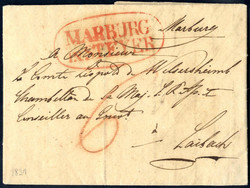 MARBURG
Marburg
A Monsieur
Le Comte Léopold de Welsersheimb
Chambellan de Sa Maj. I. R. Ap. et
Conseiller au Gouvt
à
Laibach